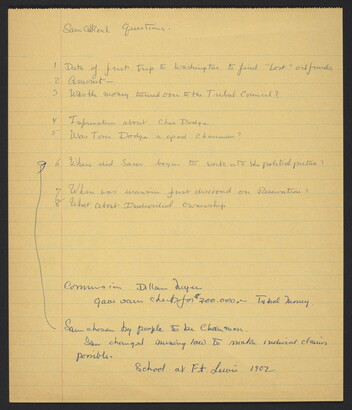 Sam Ahkeah Questions.
1 Date of first trip to Washington to find "Lost" oil funds
2 Amount —
3 Was the money turned over to the Tribal Council?
4 Information about Chee Dodge
5 Was Tom Dodge a good Chairman?
6 When did Sam begin to work into the political picture?
7 When was uranium first discovered on Reservation?
8 What about Individual ownership
Commission Dillon Myer
gave sam check for $200.000.— Tribal money
Sam chosen by people to be Chairman.
Sam changed mining law to make individual claims
possible.
School at Ft. Lewis 1902